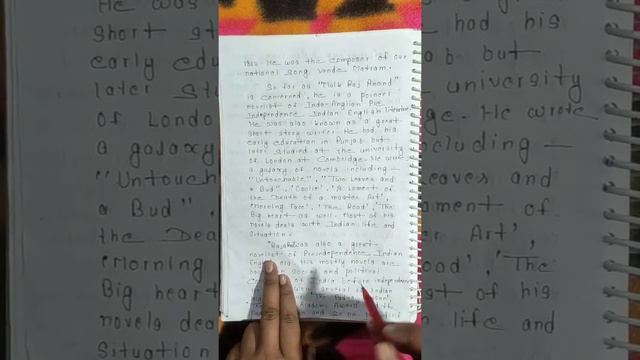 He was the composer of our
national song Vande Matram.
So far as "Mulk Raj Anand"
is concerned, he is a poineer
novelist of Indo-Anglian Pre
Independence Indian English literature.
He was also known as a great
short story writer. He had his
early education in Punjab but
later studied at the university
of London at Cambridge. He wrote
a galaxy of novels including—
"Untouchable", "Two Leaves and
a Bud", 'Coolie', 'A Lament of
the Death of a master Art',
'Morning Face', 'The Road', 'The
Big heart as well. Most of his
novels deals with Indian life and
Situation.
was also a great
novelist of Preindependence Indian
His mostly novels are
and political
of India before independence